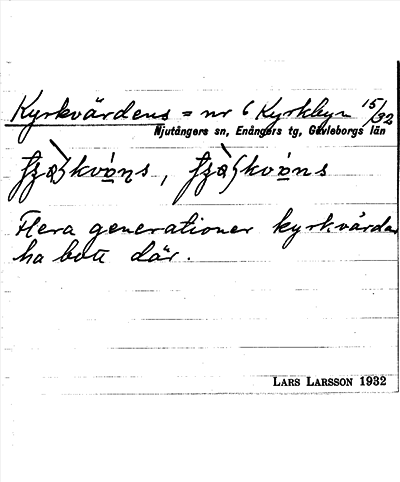 Kyrkvärdens = nr 6 Kyrkbyn 15/32
Njutångers sn, Enångers tg, Gävleborgs län
Flera generationer kyrkvärdar
ha bott där.
LARS LARSSON 1932